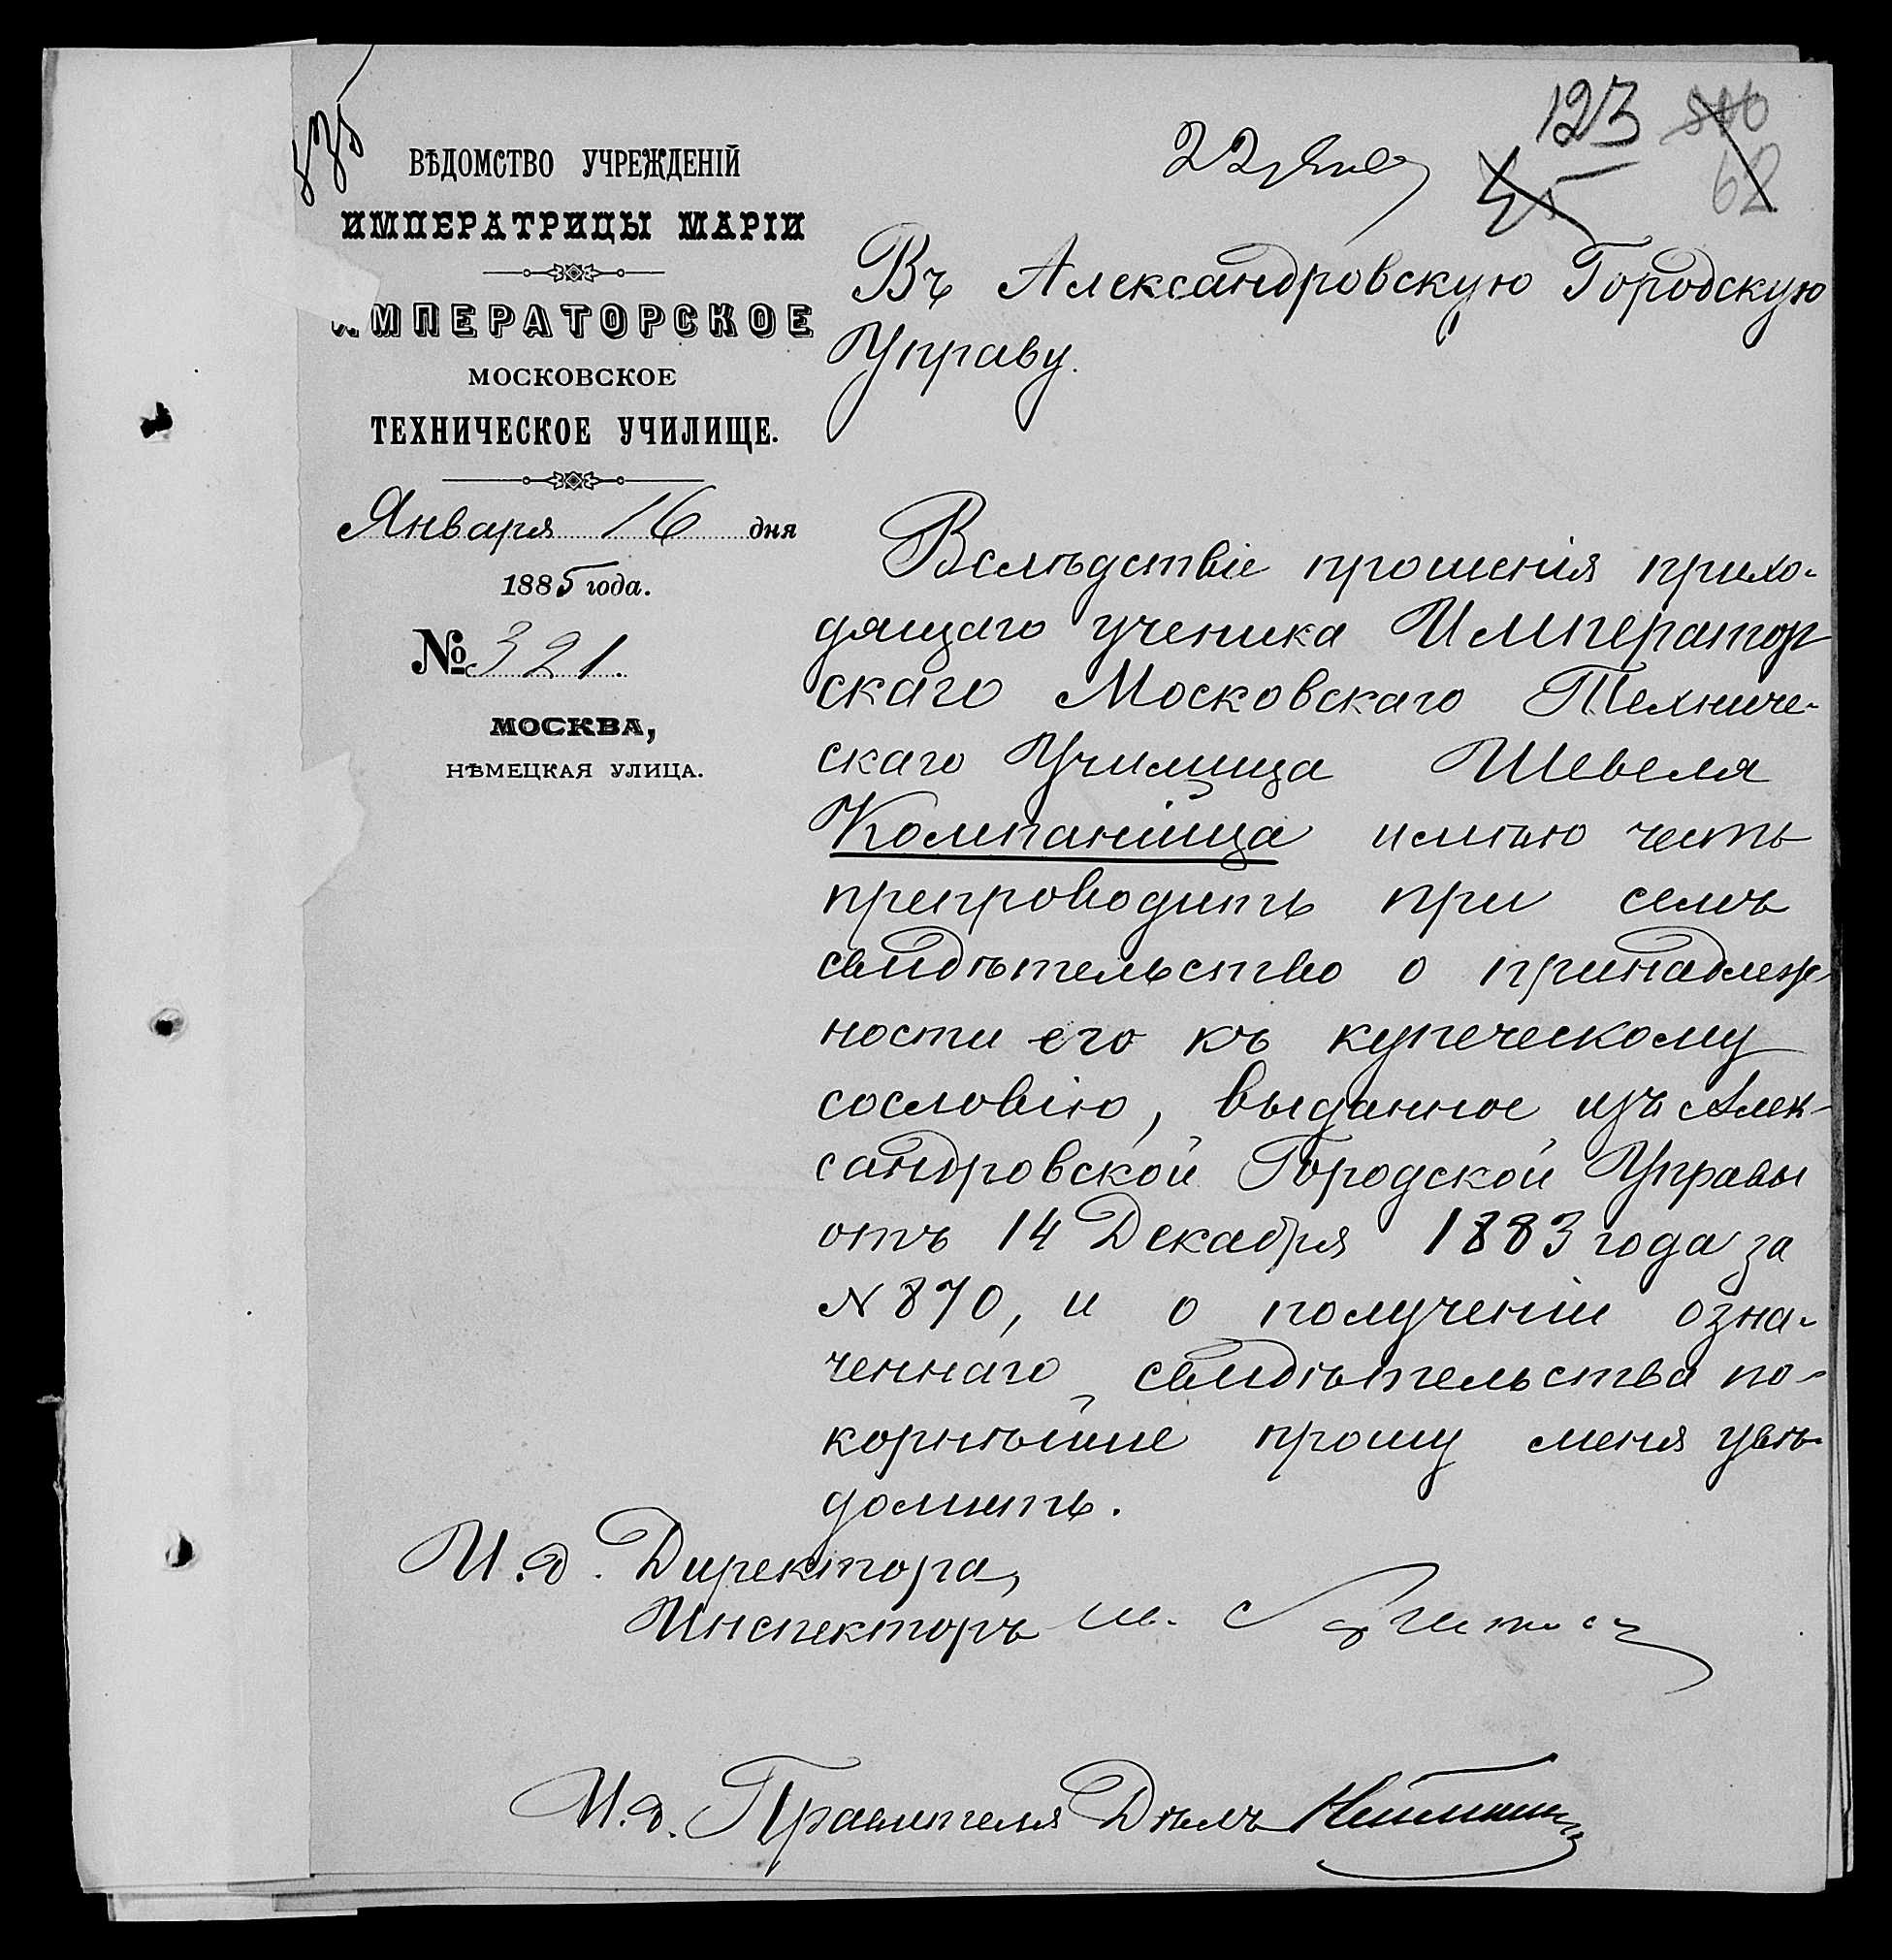 535
ВѢДОМСТВО УЧРЕЖДЕНІЙ
ИМПЕРАТРИЦЫ МАРІИ
ИМПЕРАТОРСКОЕ
МОСКОВСКОЕ
ТЕХНИЧЕСКОЕ УЧИЛИЩЕ.
Января 16 дня
1885 года.
№ 321.
МОСКВА,
НѢМЕЦКАЯ УЛИЦА.
123
22 Янв
45
62
Въ Александровскую Городскую
Управу.
Вслѣдствіе прошенія прихо-
дящаго ученика Император
скаго Московскаго Техниче-
скаго Училища Шевеля
Компанійца имѣю честь
препроводить при семъ
свидѣтельство о принадлеж-
ности его къ купеческому
сословію, выданное изъ Алек-
сандровской Городской Управы
отъ 14 Декабря 1883 года за
N 870, и о полученіи озна-
ченнаго свидѣтельства по-
корнѣйше прошу меня увѣ-
домить.
И.д. Директора,
Инспекторъ
И.д. Правителя Дѣлъ